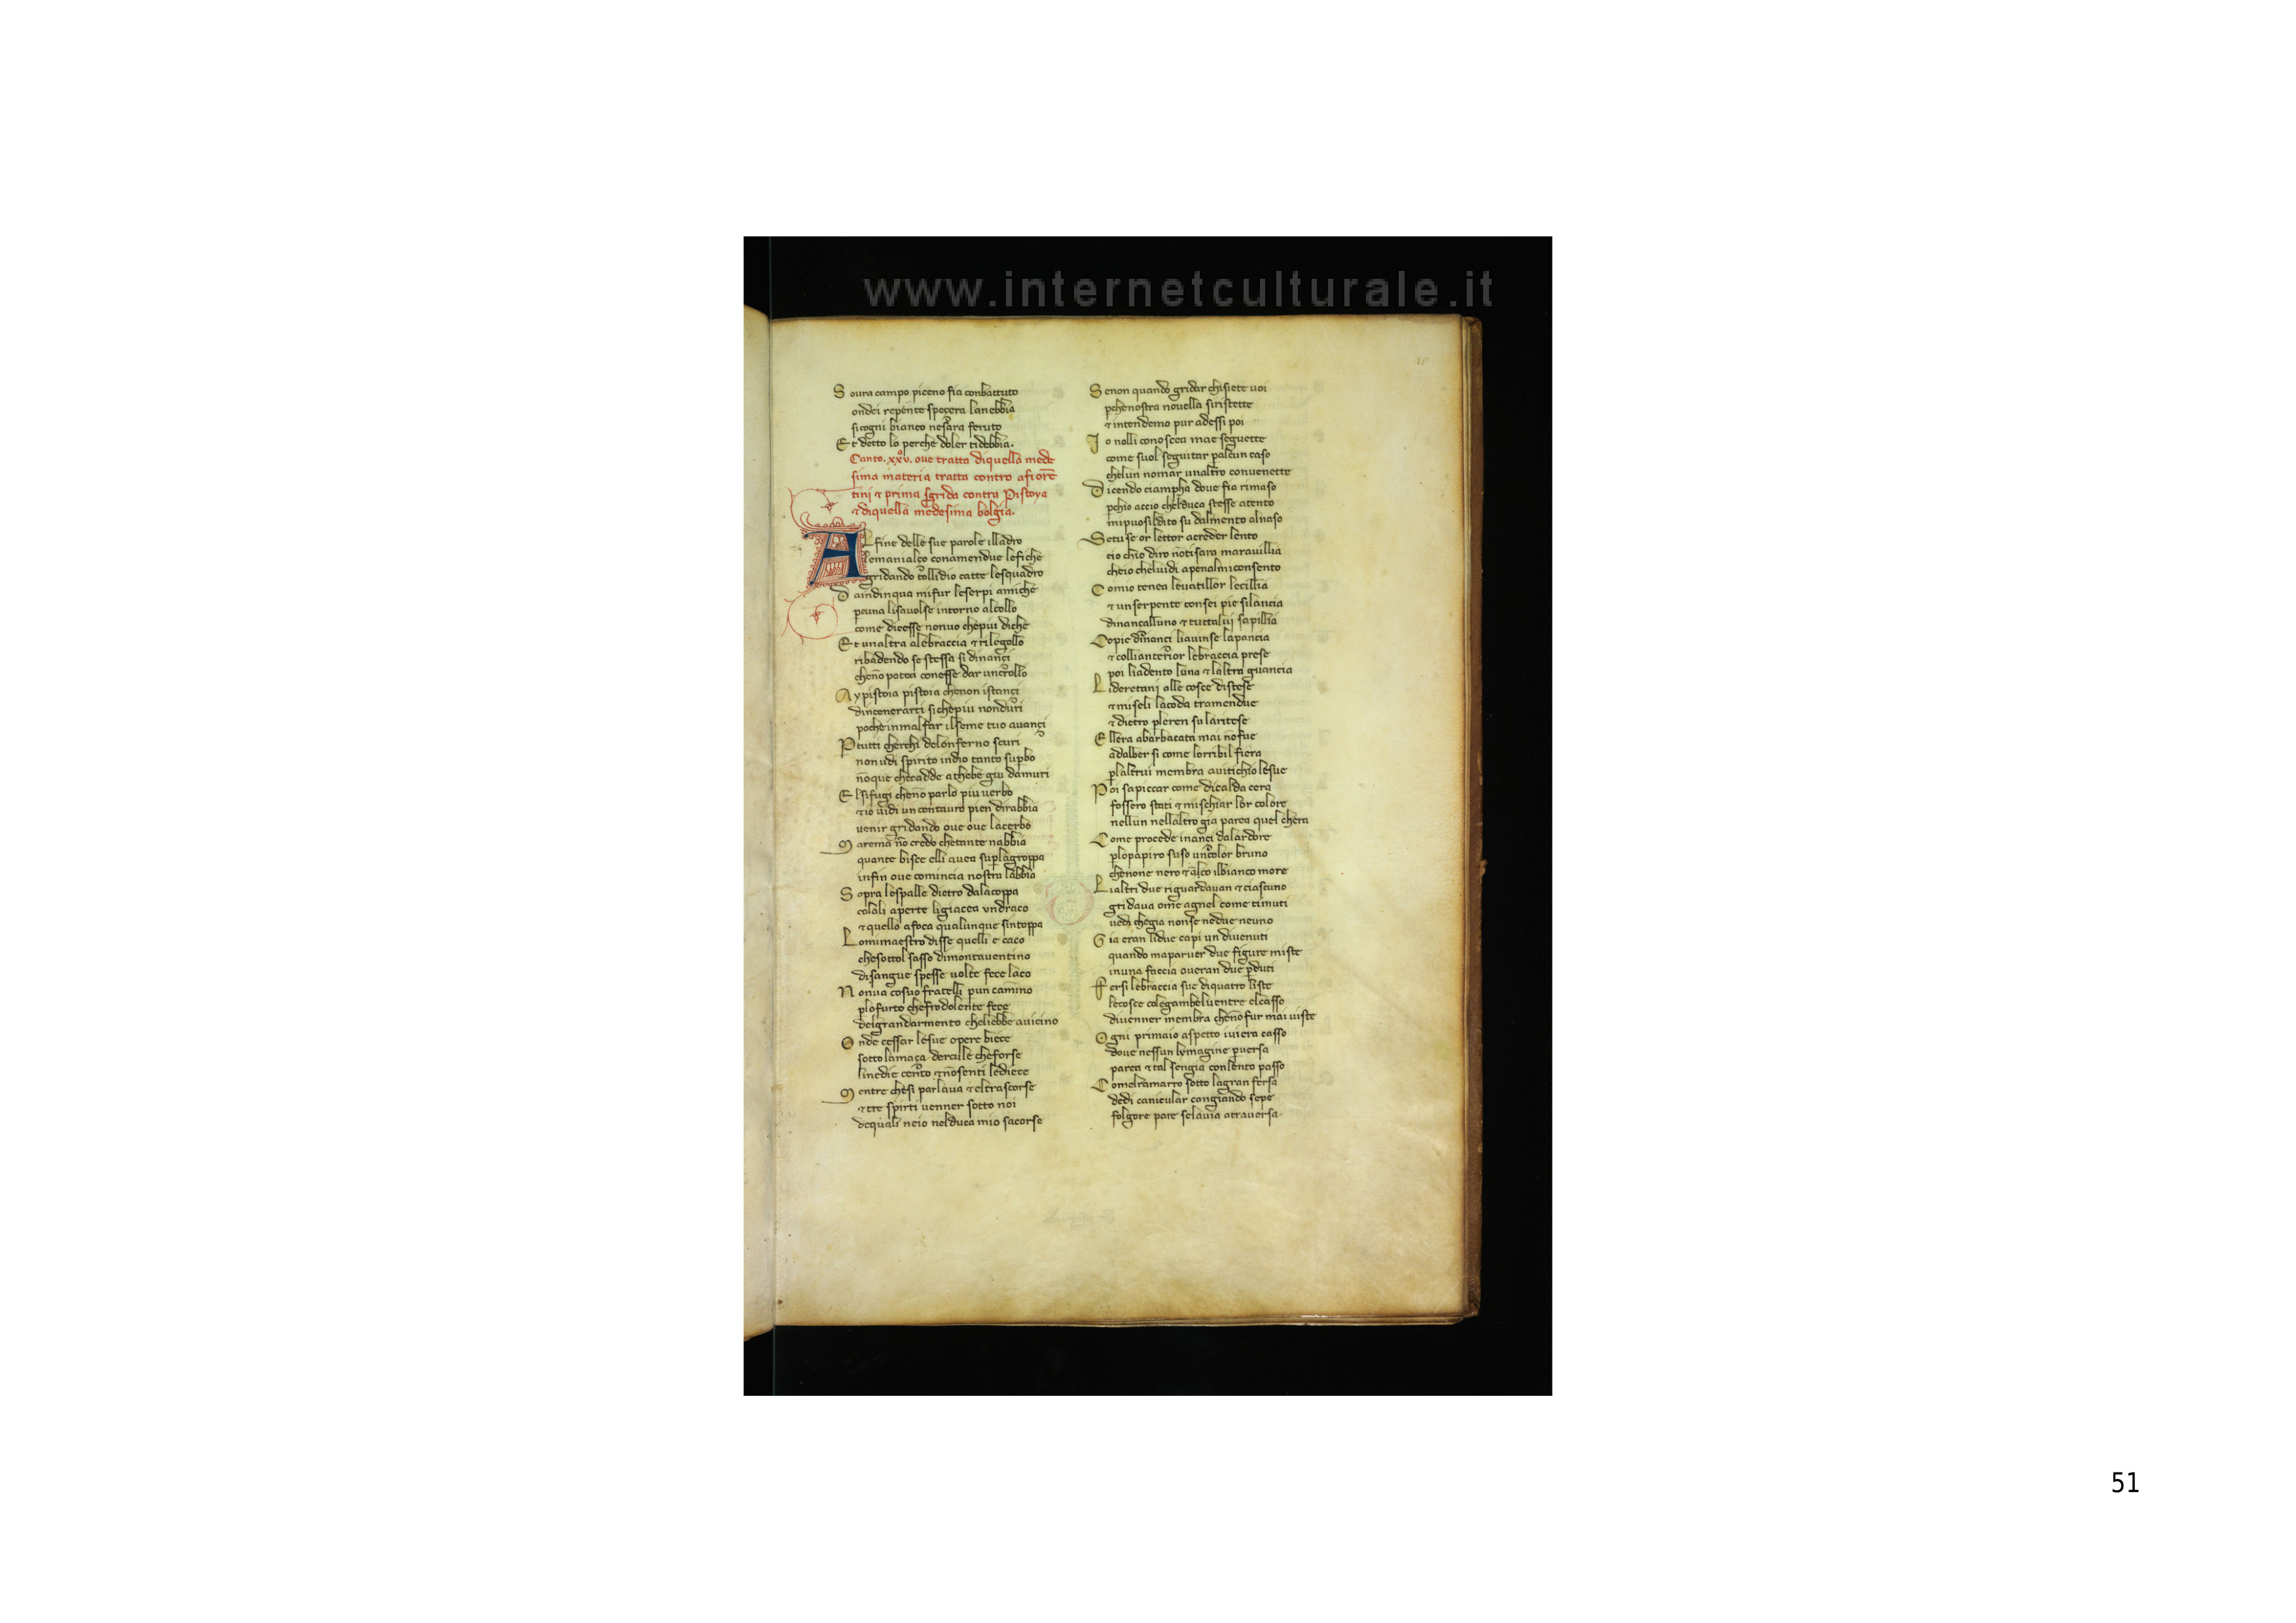 www.internetculturale.it
Soura campo piceno fia conbattuto
ondei repente speçera lanebbia
sicogni bianco nesara feruto
Et detto lo perche doler tidebbia.
Canto. xxv. oue tratta diquella mede
sima materia tratta contro afiorē
tini ⁊ prima sgrida contra Pistoya
⁊ diquella medesima bolgia.
AL fine delle sue parole illadro
lemanialço conamendue lefiche
gridando tollidio catte lesquadro
Daindinqua mifur leserpi amiche
pcuna lisauolse intorno alcollo
come dicesse nonuo chepiu diche
Et unaltra alebraccia ⁊ rilegollo
ribadendo se stessa si dinançi
chenō potea conesse dar uncrollo
Ay pistoia pistoia chenon istançi
dincenerarti sichepiu nonduri
poche inmalfar ilseme tuo auançi
Ptutti cherchi delonferno scuri
non uidi spirito indio tanto supbo
nōque checadde athebe giu damuri
Elsifugi chenō parlo piu uerbo
⁊ io uidi un centauro pien dirabbia
uenir gridando oue oue lacerbo
Marema nō credo chetante nabbia
quante bisce elli auea suplagroppa
infin oue comincia nostra labbia
Sopra lespalle dietro dalacoppa
colali aperte ligiacea undraco
⁊ quello afoca qualunque sintoppa
Lomimaestro disse quelli e caco
chesottol sasso dimontauentino
disangue spesse uolte fece laco
Nonua cosuo fratelli pun camino
plofurto chefrodolente fece
delgrandarmento cheliebbe auicino
Onde cessar lesue opere biece
sotto lamaça dercule cheforse
linedie cento ⁊ nōsenti lediece
Mentre chesi parlaua ⁊ eltrascorse
⁊ tre spirti uenner sotto noi
dequali neio nelduca mio sacorse
Senon quando gridar chisiete uoi
pchenostra nouella siristette
⁊ intendemo pur adessi poi
Io nolli conoscea mae seguette
come suol seguitar palcun caso
chelun nomar unaltro conuenette
Dicendo ciampha doue fia rimaso
pchio accio chelduca stesse atento
mipuosildito su dalmento alnaso
Setuse or lettor acreder lento
cio chio diro nōtisara marauillia
cheio cheluidi apenalmiconsento
Comio tenea leuatillor lecillia
⁊ unserpente consei pie silancia
dinancalluno ⁊ tuttalui sapillia
Copie dinanci liauinse lapancia
⁊ collianterior lebraccia prese
poi liadento luna ⁊ laltra guancia
Lideretani alle cosce distese
⁊ miseli lacoda tramendue
⁊ dietro pleren su laritese
Ellera abarbacata mai nōfue
adalber si come lorribil fiera
plaltrui membra auitichio lesue
Poi sapiccar come dicalda cera
fossero stati ⁊ mischiar lor colore
nellun nellaltro gia parea quel chera
Come procede inançi dalardore
plopapiro suso uncolor bruno
chenone nero ⁊ alco ilbianco more
Lialtri due riguardauan ⁊ ciascuno
gridaua ome agnel come timuti
uedi chegia nonse nedue neuno
Gia eran lidue capi un diuenuti
quando maparuer due figure miste
inuna faccia oueran due pduti
Fersi lebraccia sue diquatro liste
lecosce colegambeluentre elcasso
diuenner membra chenōfur mai uiste
Ogni primaio aspetto iuiera casso
doue nessun lymagine puersa
parea ⁊ tal sengia conlento passo
Comelramarro sotto lagran fersa
dedi canicular cangiando sepe
folgore pare selauia atrauersa
51